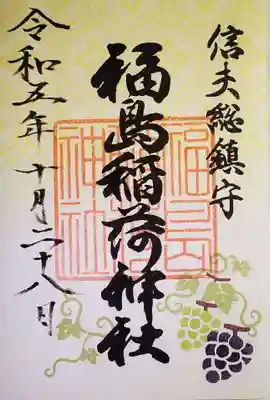 信夫総鎮守
福島稲荷神社
令和五年十月二十八日
福島
神社